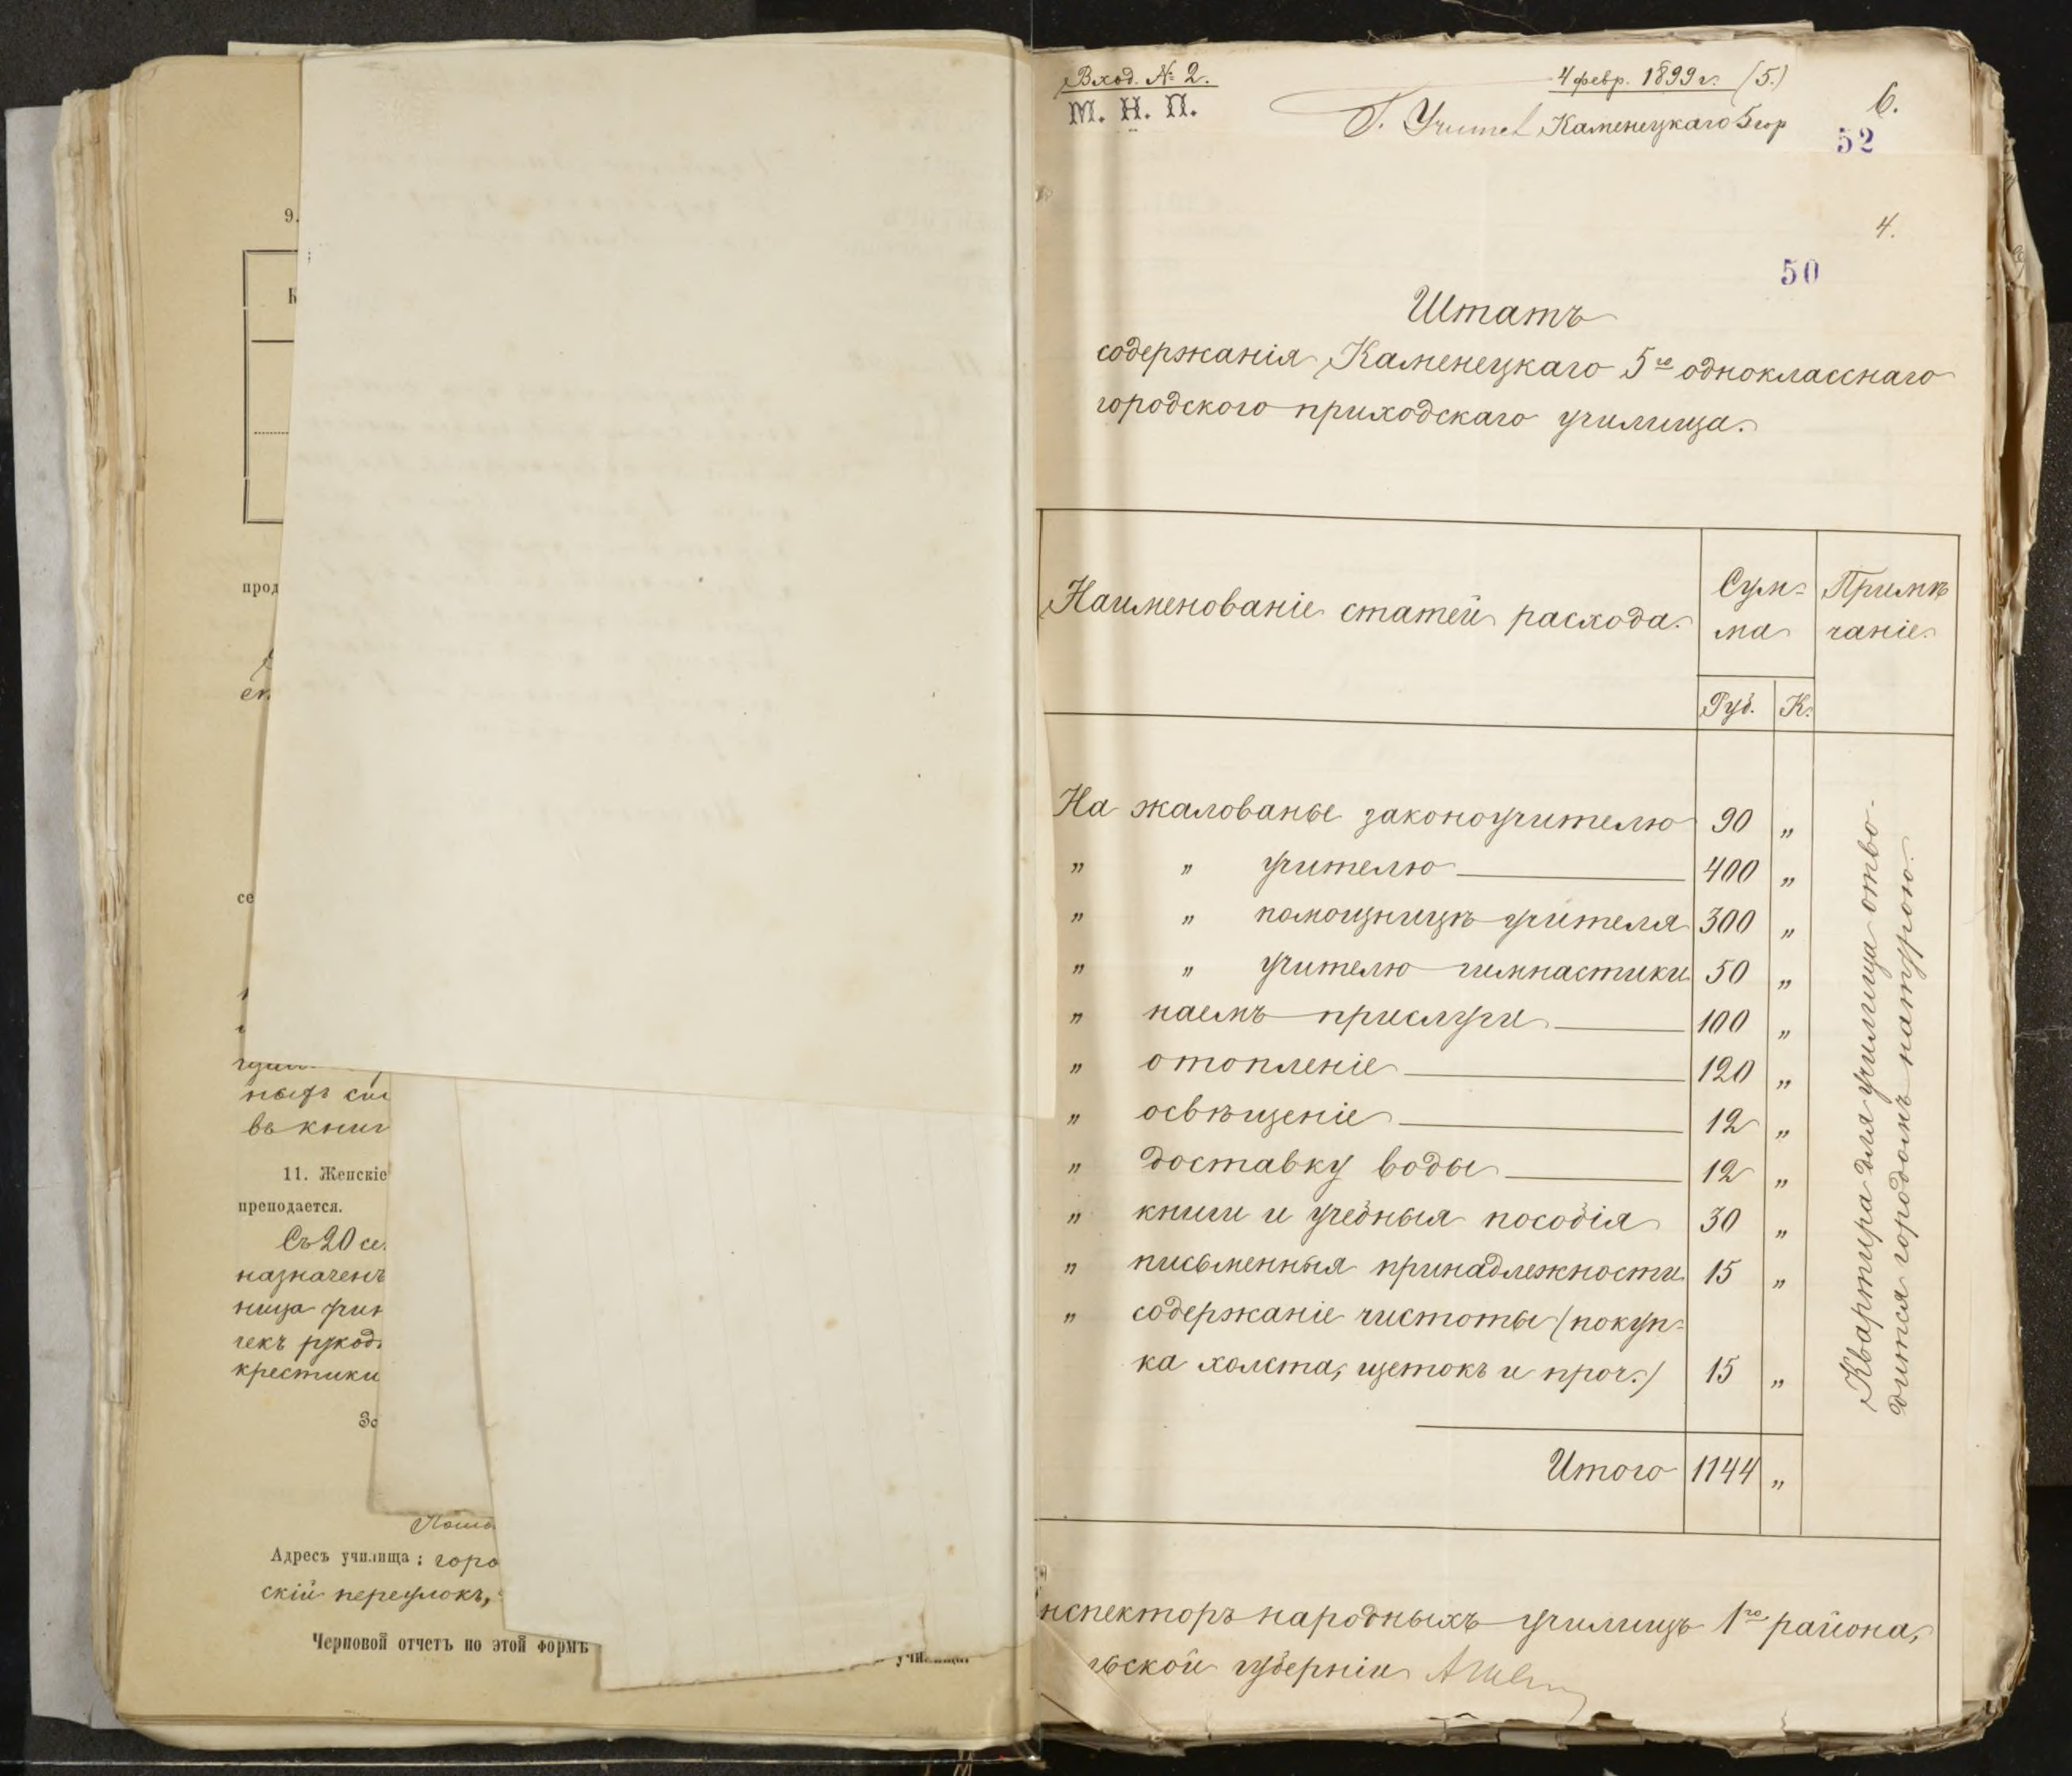 9.
прод
се
ныхъ сп
въ книг
11. Женскіе
преподается.
Съ 20 се
назначен
ница учи
чекъ рукод
крестики
Адресъ училища: горо
скій переулокъ,
Черновой отчетъ по этой формѣ
Вход. № 2.
4 февр. 1899 г. (5.)
М. Н. П.
Г. Учител Каменецкаго 5 гор
6.
52
4.
50
Штатъ
содержанія Каменецкаго 5го однокласснаго
городского приходскаго училища.
Наименованіе статей расхода.
Сум-
ма
Примѣ
чаніе.
Руб. К.
На жалованье законоучителю 90 „
„ „ учителю 400 „
„ „ помощницѣ учителя 300 „
„ „ учителю гимнастики 50 „
„ наемъ прислуги 100 „
„ отопленіе 120 „
„ освѣщеніе 12 „
„ доставку воды 12 „
„ книги и учебныя пособія 30 „
„ письменныя принадлежности 15 „
„ содержаніе чистоты (покуп-
ка холста, щетокъ и проч.) 15 „
Итого 1144 „
Квартира для училища отво-
дится городомъ натурою.
нспекторъ народныхъ училищъ 1го района,
льской губерніи